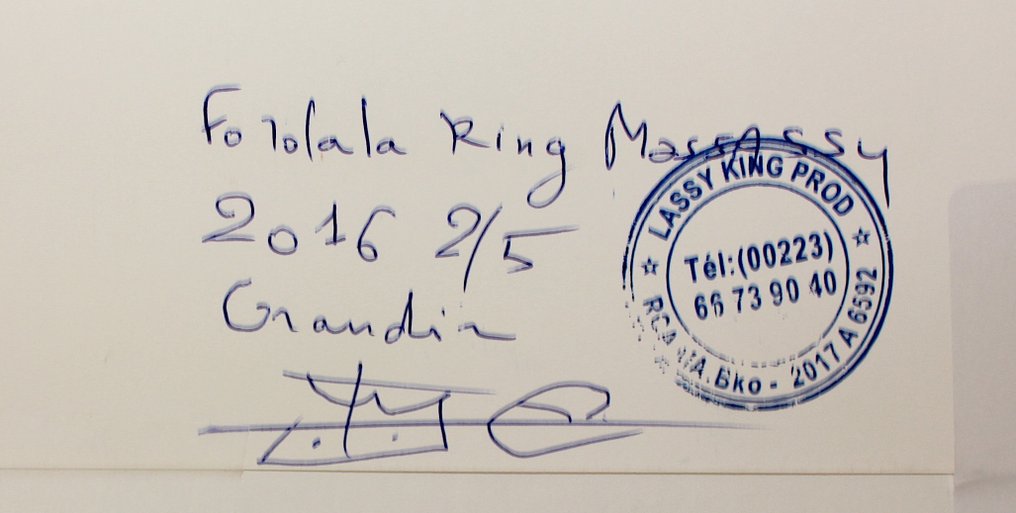 Fololala King Massassy
2016 2/5
Grandir
LASSY KING PROD
Tél:(00223)
66 73 90 40
RCA MA.Bko - 2017 A 6592